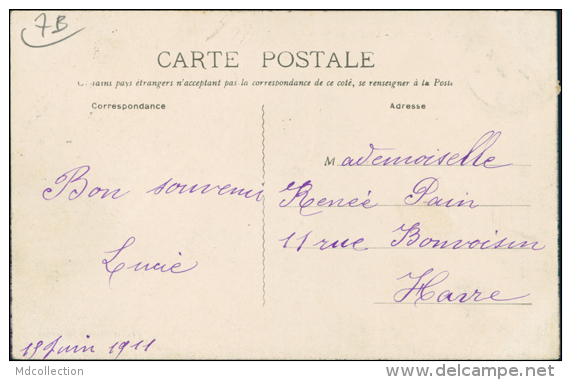 7B
CARTE POSTALE
Certains pays étrangers n'acceptant pas la correspondance de ce coté, se renseigner à la Poste
Correspondance
Adresse
Bon souvenir
Lucie
15 Juin 1911
Mademoiselle
Renée Pain
11 rue Bonvoisin
Havre
Mdcollection
www.delcampe.net